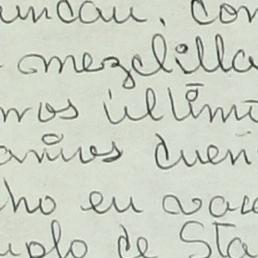 undau. Con
mezclilla
mos últim
anivos duen
ho en vau
uplo de Sta